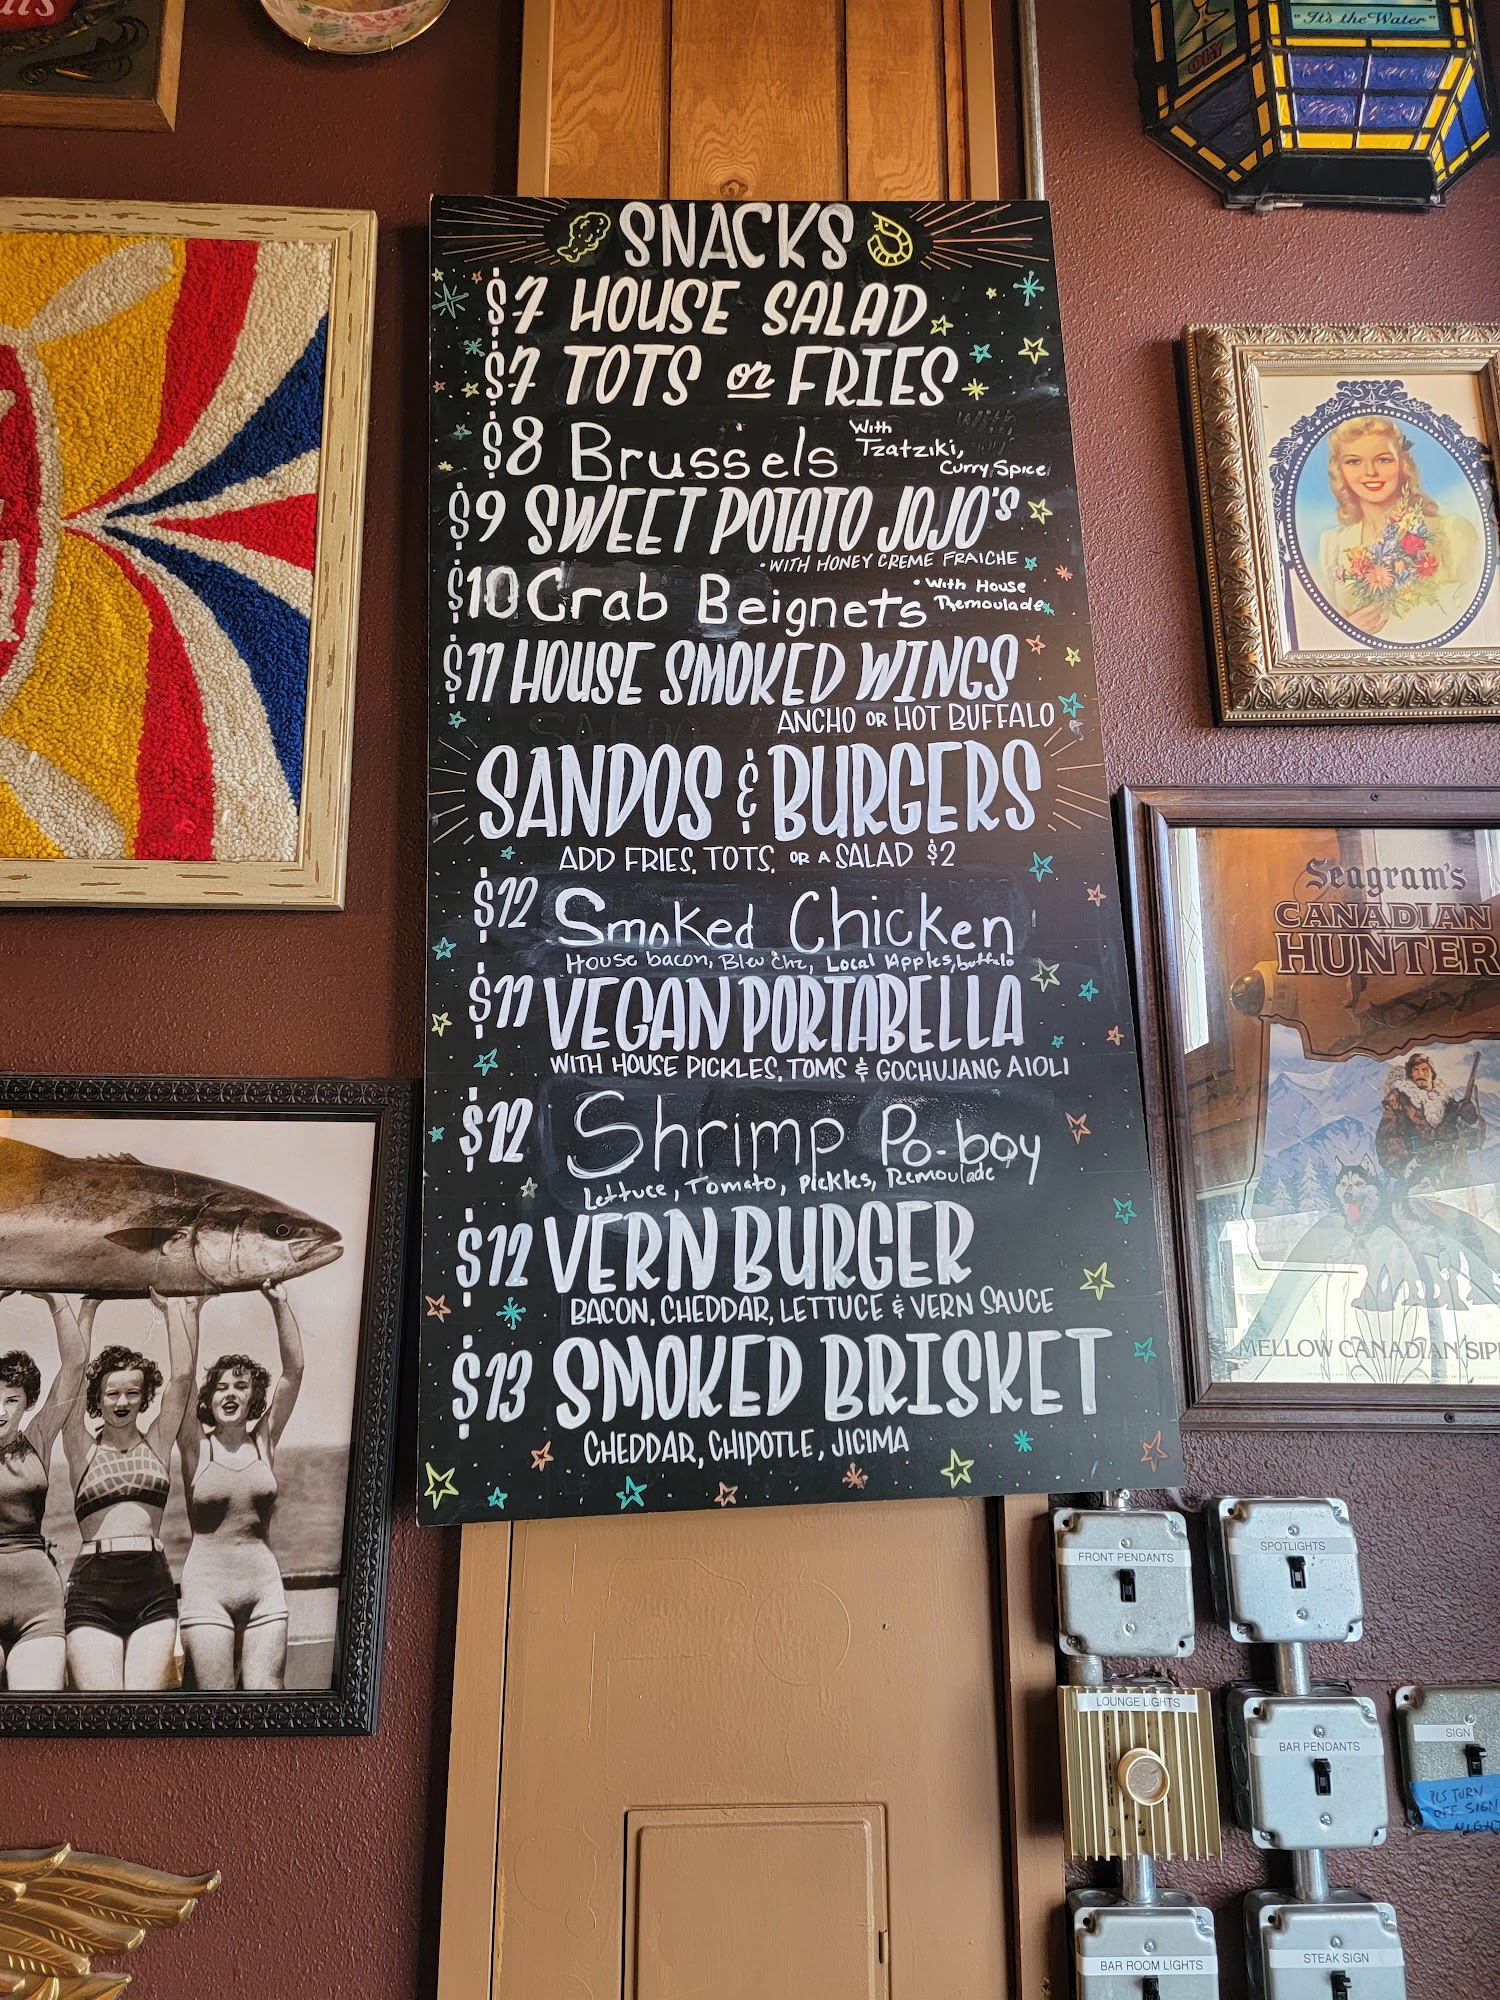 "It's the Water"
OLY
SNACKS
$7 HOUSE SALAD
$7 TOTS or FRIES
$8 Brussels With Tzatziki, Curry Spice
$9 SWEET POTATO JOJO'S
• WITH HONEY CREME FRAICHE
$10 Crab Beignets • With House Remoulade
$11 HOUSE SMOKED WINGS
ANCHO OR HOT BUFFALO
SANDOS & BURGERS
ADD FRIES, TOTS, OR A SALAD $2
$12 Smoked Chicken
House bacon, Bleu Chz, Local Apples, buffalo
$11 VEGAN PORTABELLA
WITH HOUSE PICKLES, TOMS & GOCHUJANG AIOLI
$12 Shrimp Po-boy
Lettuce, Tomato, Pickles, Remoulade
$12 VERN BURGER
BACON, CHEDDAR, LETTUCE & VERN SAUCE
$13 SMOKED BRISKET
CHEDDAR, CHIPOTLE, JICIMA
Seagram's
CANADIAN
HUNTER
MELLOW CANADIAN SIP
FRONT PENDANTS
SPOTLIGHTS
LOUNGE LIGHTS
BAR PENDANTS
SIGN
PLS TURN
OFF SIGN
NIGH
BAR ROOM LIGHTS
STEAK SIGN